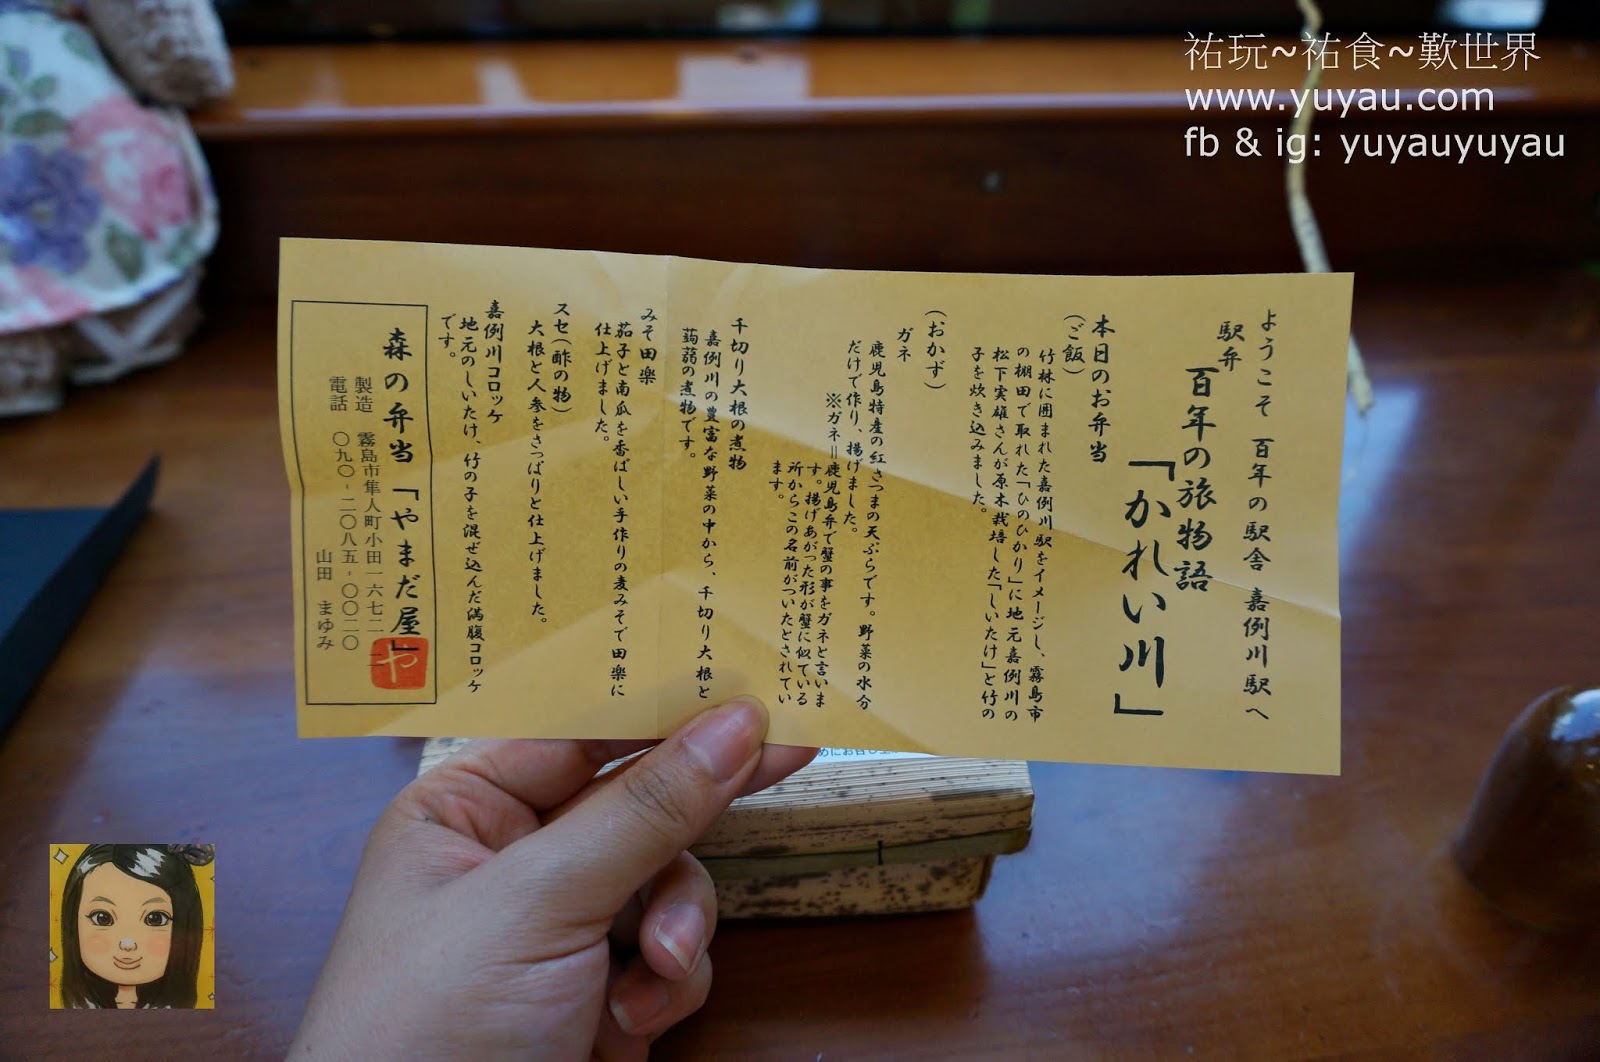 祐玩~祐食~歎世界
www.yuyau.com
fb & ig: yuyauyuyau
ようこそ 百年の駅舎 嘉例川駅へ
駅弁
百年の旅物語
「かれい川」
本日のお弁当
(ご飯)
竹林に囲まれた嘉例川駅をイメージし、霧島市
の棚田で取れた「ひのひかり」に地元嘉例川の
松下実雄さんが原木栽培した「しいたけ」と竹の
子を炊き込みました。
(おかず)
ガネ
鹿児島特産の紅さつまの天ぷらです。野菜の水分
だけで作り、揚げました。
※ガネ=鹿児島弁で蟹の事をガネと言いま
す。揚げあがった形が蟹に似ている
所からこの名前がついたとされてい
ます。
千切り大根の煮物
嘉例川の豊富な野菜の中から、千切り大根と
蒟蒻の煮物です。
みそ田楽
茄子と南瓜を香ばしい手作りの麦みそで田楽に
仕上げました。
スセ(酢の物)
大根と人参をさっぱりと仕上げました。
嘉例川コロッケ
地元のしいたけ、竹の子を混ぜ込んだ満腹コロッケ
です。
森の弁当「やまだ屋」
や
製造 霧島市隼人町小田一六七二ー二
電話 〇九〇-二〇八五-〇〇二〇
山田 まゆみ